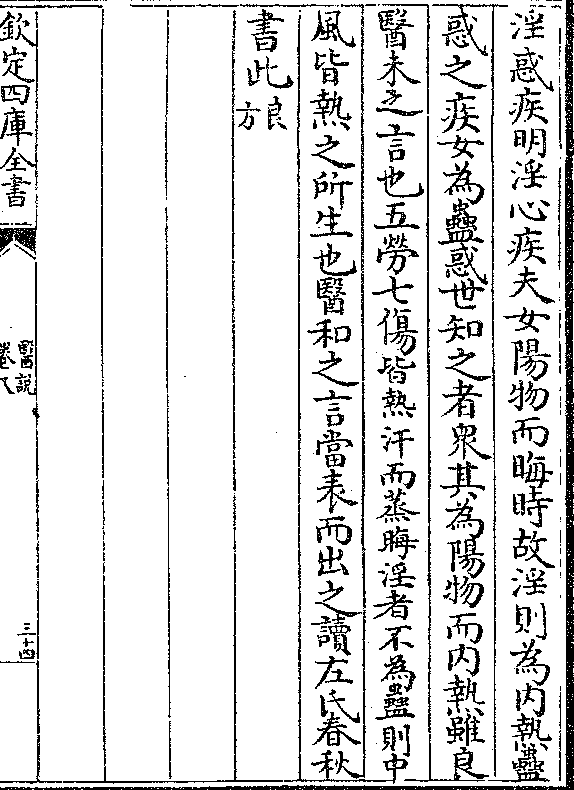 淫惑疾明淫心疾夫女陽物而晦時故淫則為内熱蠱
惑之疾女為蠱惑世知之者衆其為陽物而内熱雖良
醫未之言也五勞七傷皆熱汗而蒸晦淫者不為蠱則中
風皆熱之所生也醫和之言當表而出之讀左氏春秋
書此良方
欽定四庫全書
醫説
卷八
三十四